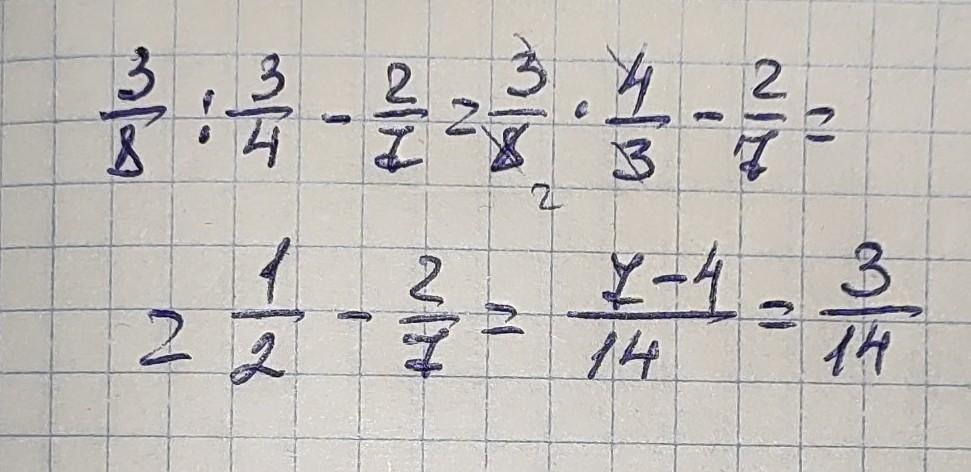 3/8 : 3/4 - 2/7 = 3/8 · 4/3 - 2/7 =
2
= 1/2 - 2/7 = 7-4/14 = 3/14